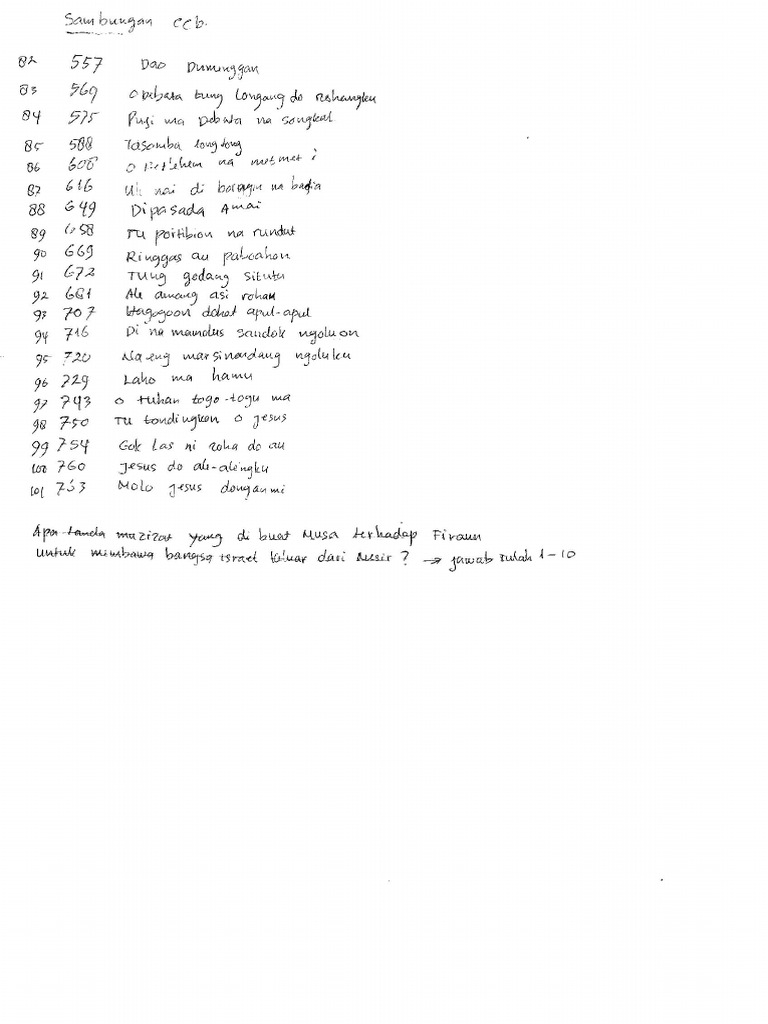 Sambungan CCb.
82 557 Dao Dumenggan
83 569 O Debata tung longang do rohangku
84 575 Puji ma Debata na songkal
85 588 Tasomba longtong
86 608 O Betlehem na metmet i
87 616 Uli nai di borngin na badia
88 649 Dipasada Amai
89 658 Tu portibion na rundut
90 669 Ringgas au paboahon
91 672 Tung godang situtu
92 681 Ale amang asi roham
93 707 Hagogoon dohot apul-apul
94 716 Di na mandus sandok ngoluon
95 720 Naeng marsinondang ngoluku
96 729 Laho ma hamu
97 743 O tuhan togo-togu ma
98 750 Tu tondingkon o jesus
99 754 Gok las ni roha do au
100 760 Jesus do ale-alengku
101 763 Molo jesus donganmi
Apa tanda mazizat yang di buat Musa terhadap Firaun
untuk mimbawa bangsa israel keluar dari Mesir? → jawab tulah 1-10